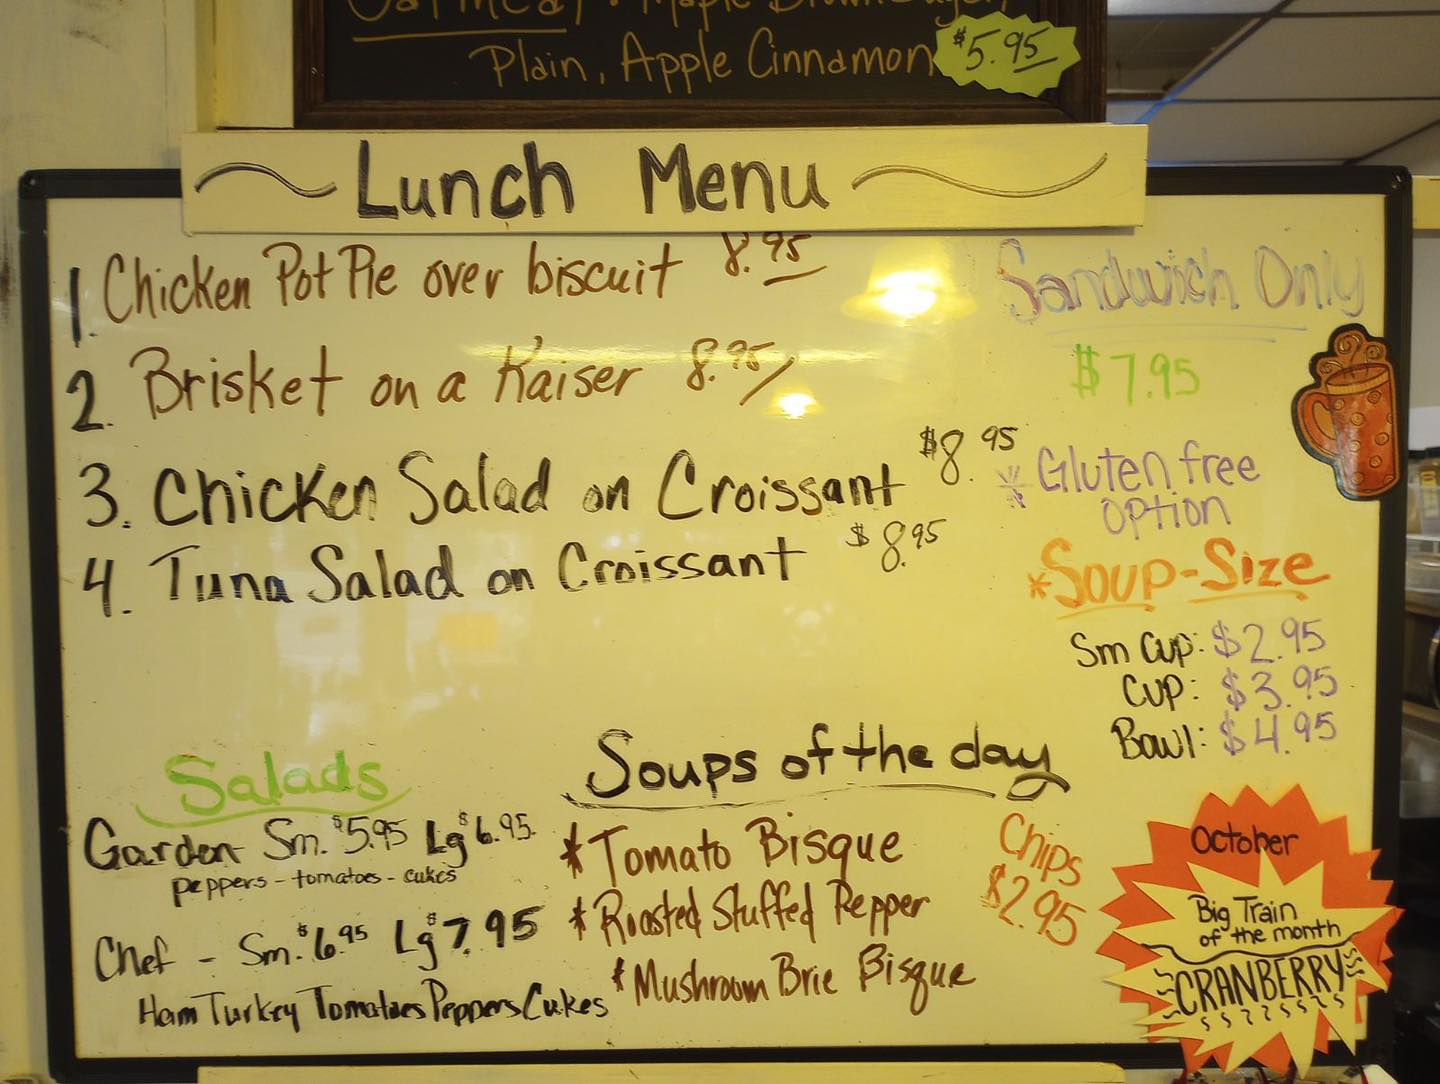 Oatmeal - Maple Brown Sugar,
Plain, Apple Cinnamon $5.95
Lunch Menu
1. Chicken Pot Pie over biscuit 8.95
2. Brisket on a Kaiser 8.95/
3. Chicken Salad on Croissant $8.95
4. Tuna Salad on Croissant $8.95
Sandwich Only
$7.95
Gluten free
option
*Soup-Size
Sm Cup: $2.95
Cup: $3.95
Bowl: $4.95
Salads
Garden - Sm. $5.95 Lg $6.95
peppers - tomatoes - cukes
Chef - Sm. $6.95 Lg $7.95
Ham Turkey Tomatoes Peppers Cukes
Soups of the day
*Tomato Bisque
*Roasted Stuffed Pepper
*Mushroom Brie Bisque
Chips
$2.95
October
Big Train
of the month
CRANBERRY